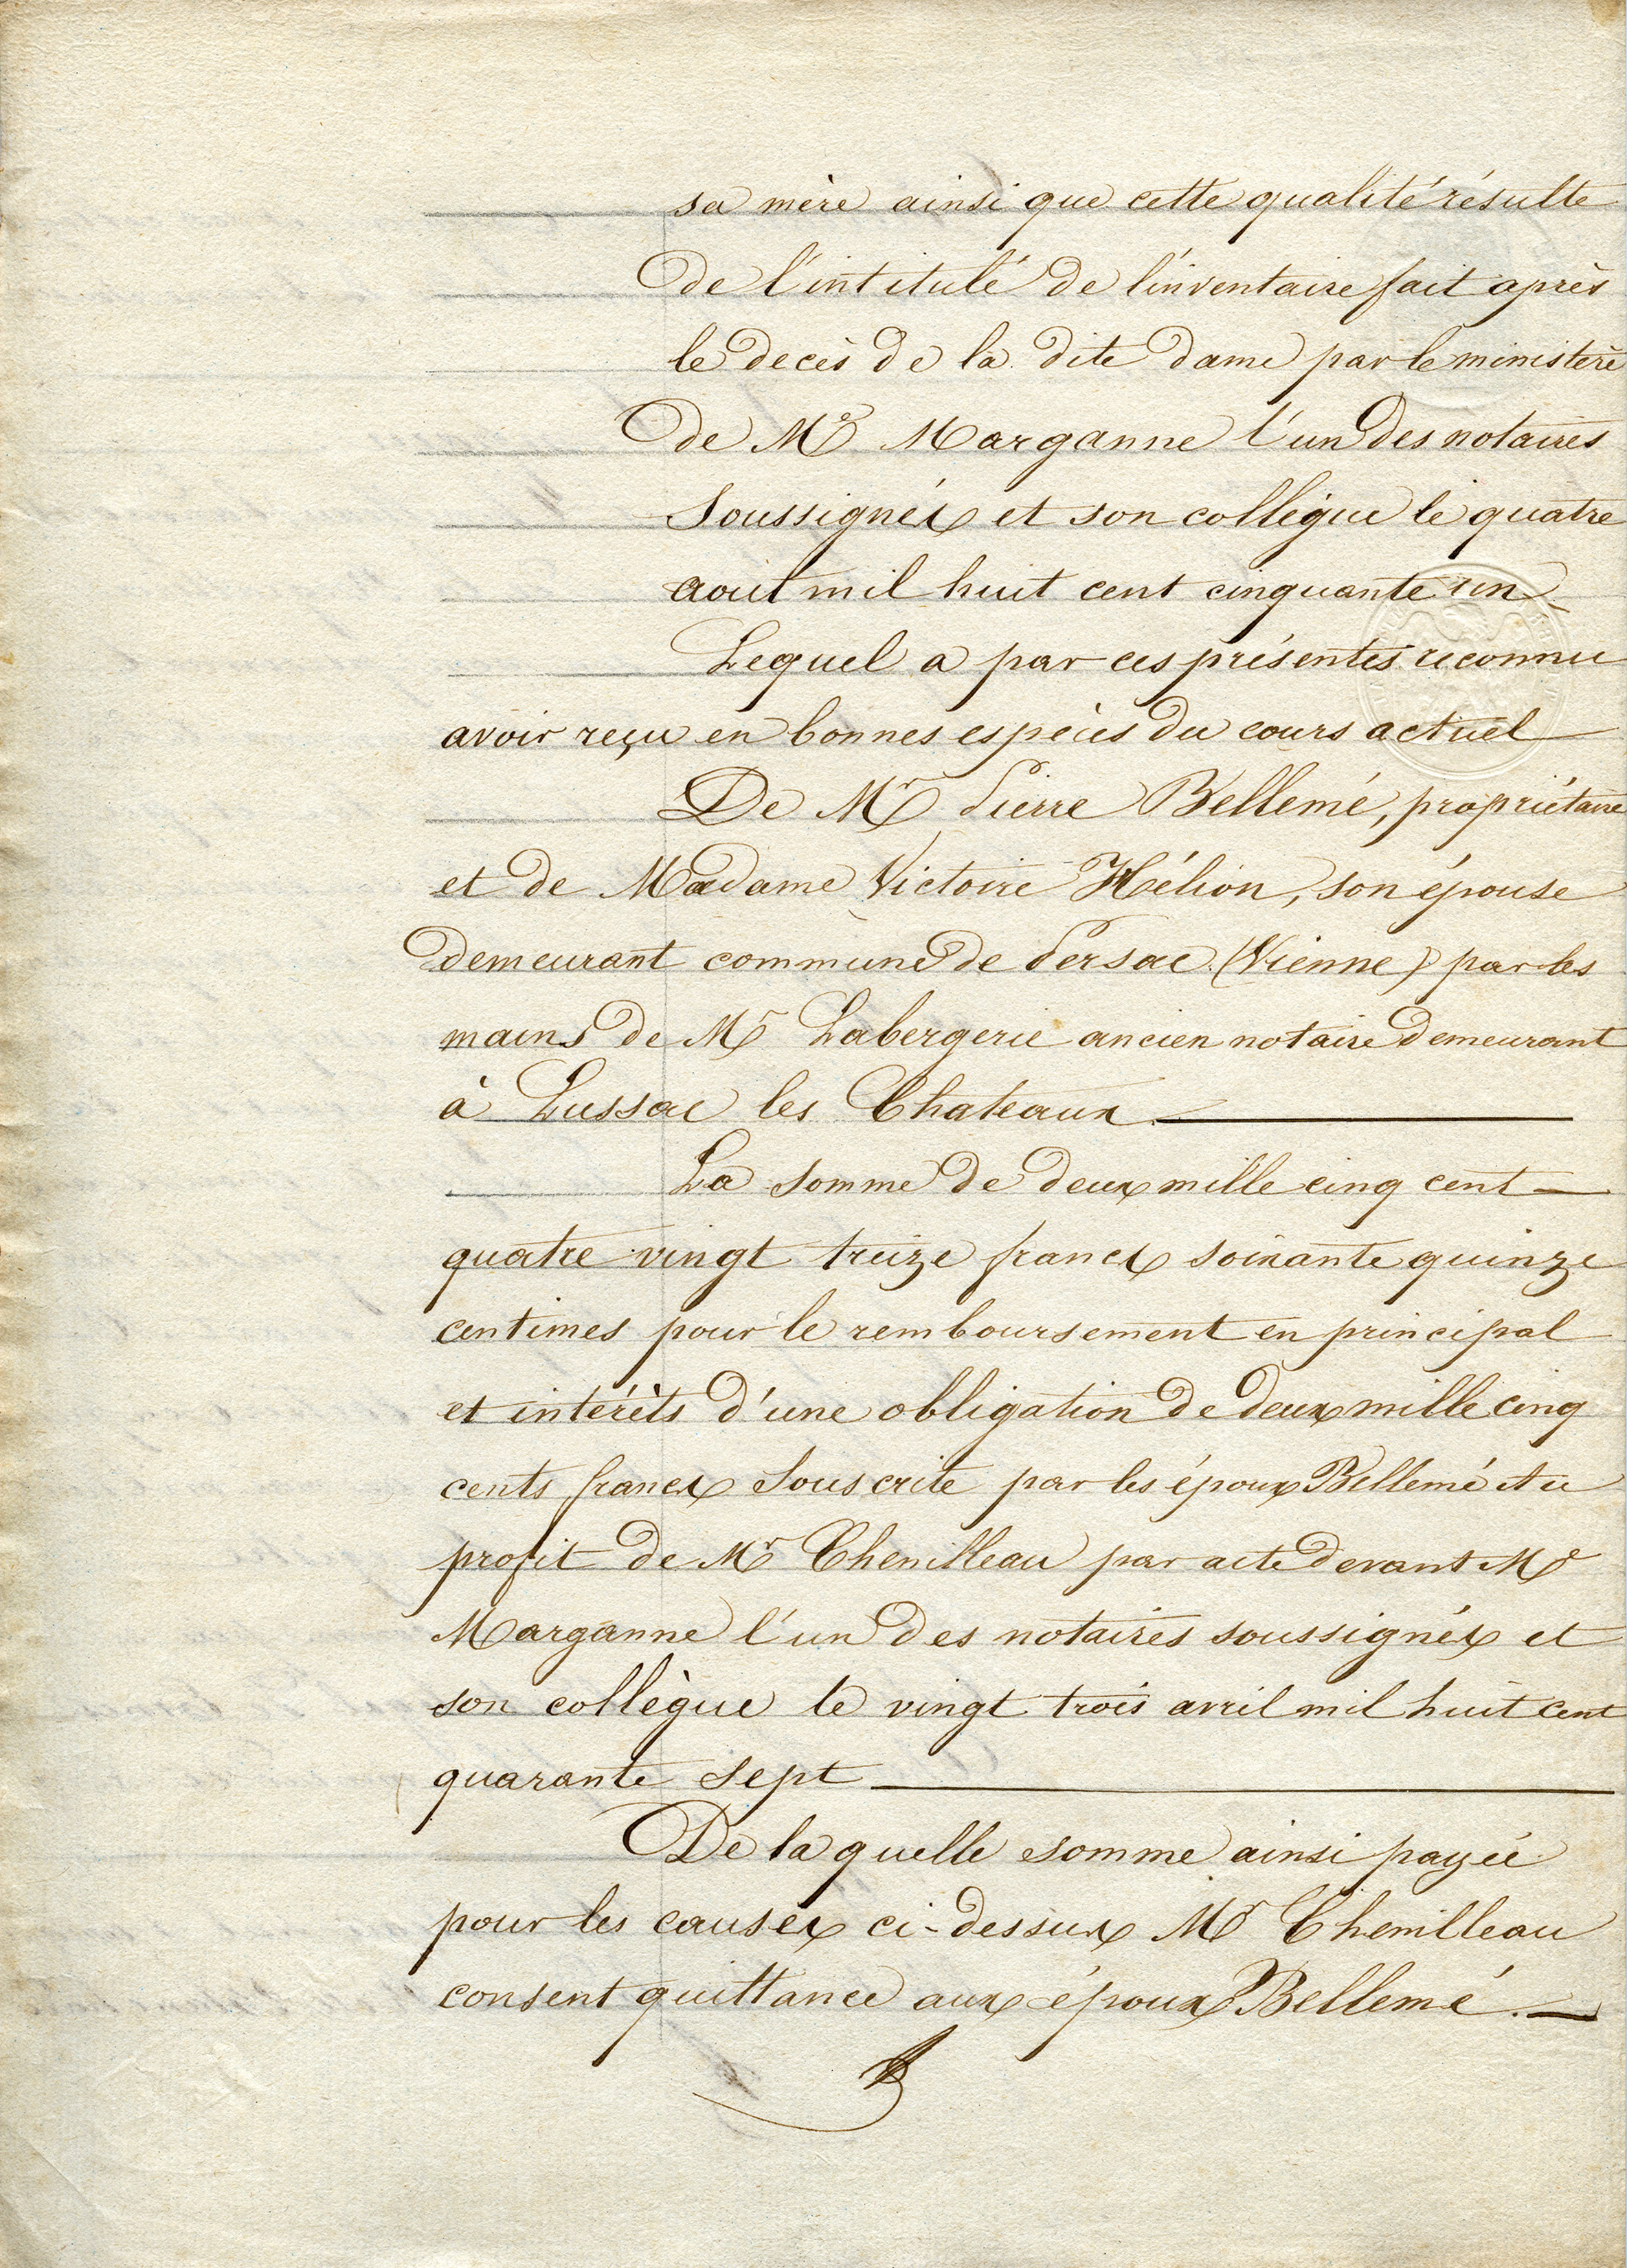 sa mère ainsi que cette qualité résulte
de l'intitulé de l'inventaire fait après
le decès de la dite dame par le ministère
de Me Marganne l'un des notaires
soussignés et son collègue le quatre
aout mil huit cent cinquante un
Lequel a par ces présentes reconnu
avoir reçu en bonnes espèces du cours actuel
De Mr Pierre Bellemé, propriétaire
et de Madame Victoire Hélion, son épouse
demeurant commune de Persac (Vienne) par les
mains de Mr Labergerie ancien notaire demeurant
à Lussac les Chateaux.
La somme de deux mille cinq cent
quatre vingt treize francs soixante quinze
centimes pour le remboursement en principal
et intérèts d'une obligation de deux mille cinq
cents francs souscrite par les époux Bellemé au
profit de Mr Chenilleau par acte devant Me
Marganne l'un des notaires soussignés et
son collègue le vingt trois avril mil huit cent
quarante sept
De laquelle somme ainsi payée
pour les causes ci-dessus Mr Chenilleau
consent quittance aux époux Bellemé.